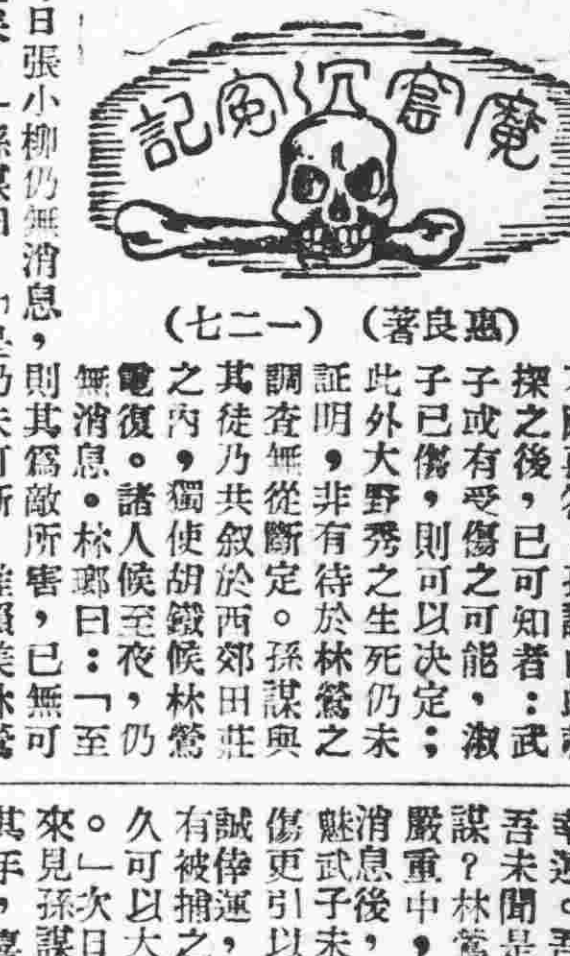 魔窟沉冤記
（惠良著）　（一二七）
探之後，已可知者：武
子或有受傷之可能，淑
子已傷，則可以决定；
此外大野秀之生死仍未
証明，非有待於林鶯之
調査無從斷定。孫謀與
其徒乃共叙於西郊田莊
之內，獨使胡鐵候林鶯
電復。諸人候至夜，仍
無消息。林瑯曰：「至
日張小柳仍無消息，則其爲敵所害，已無可
吾未聞是
謀？林鶯
嚴重中，
消息後，
魅武子未
傷更引以
誠倖運，
有被捕之
久可以大
。」次日
來見孫謀